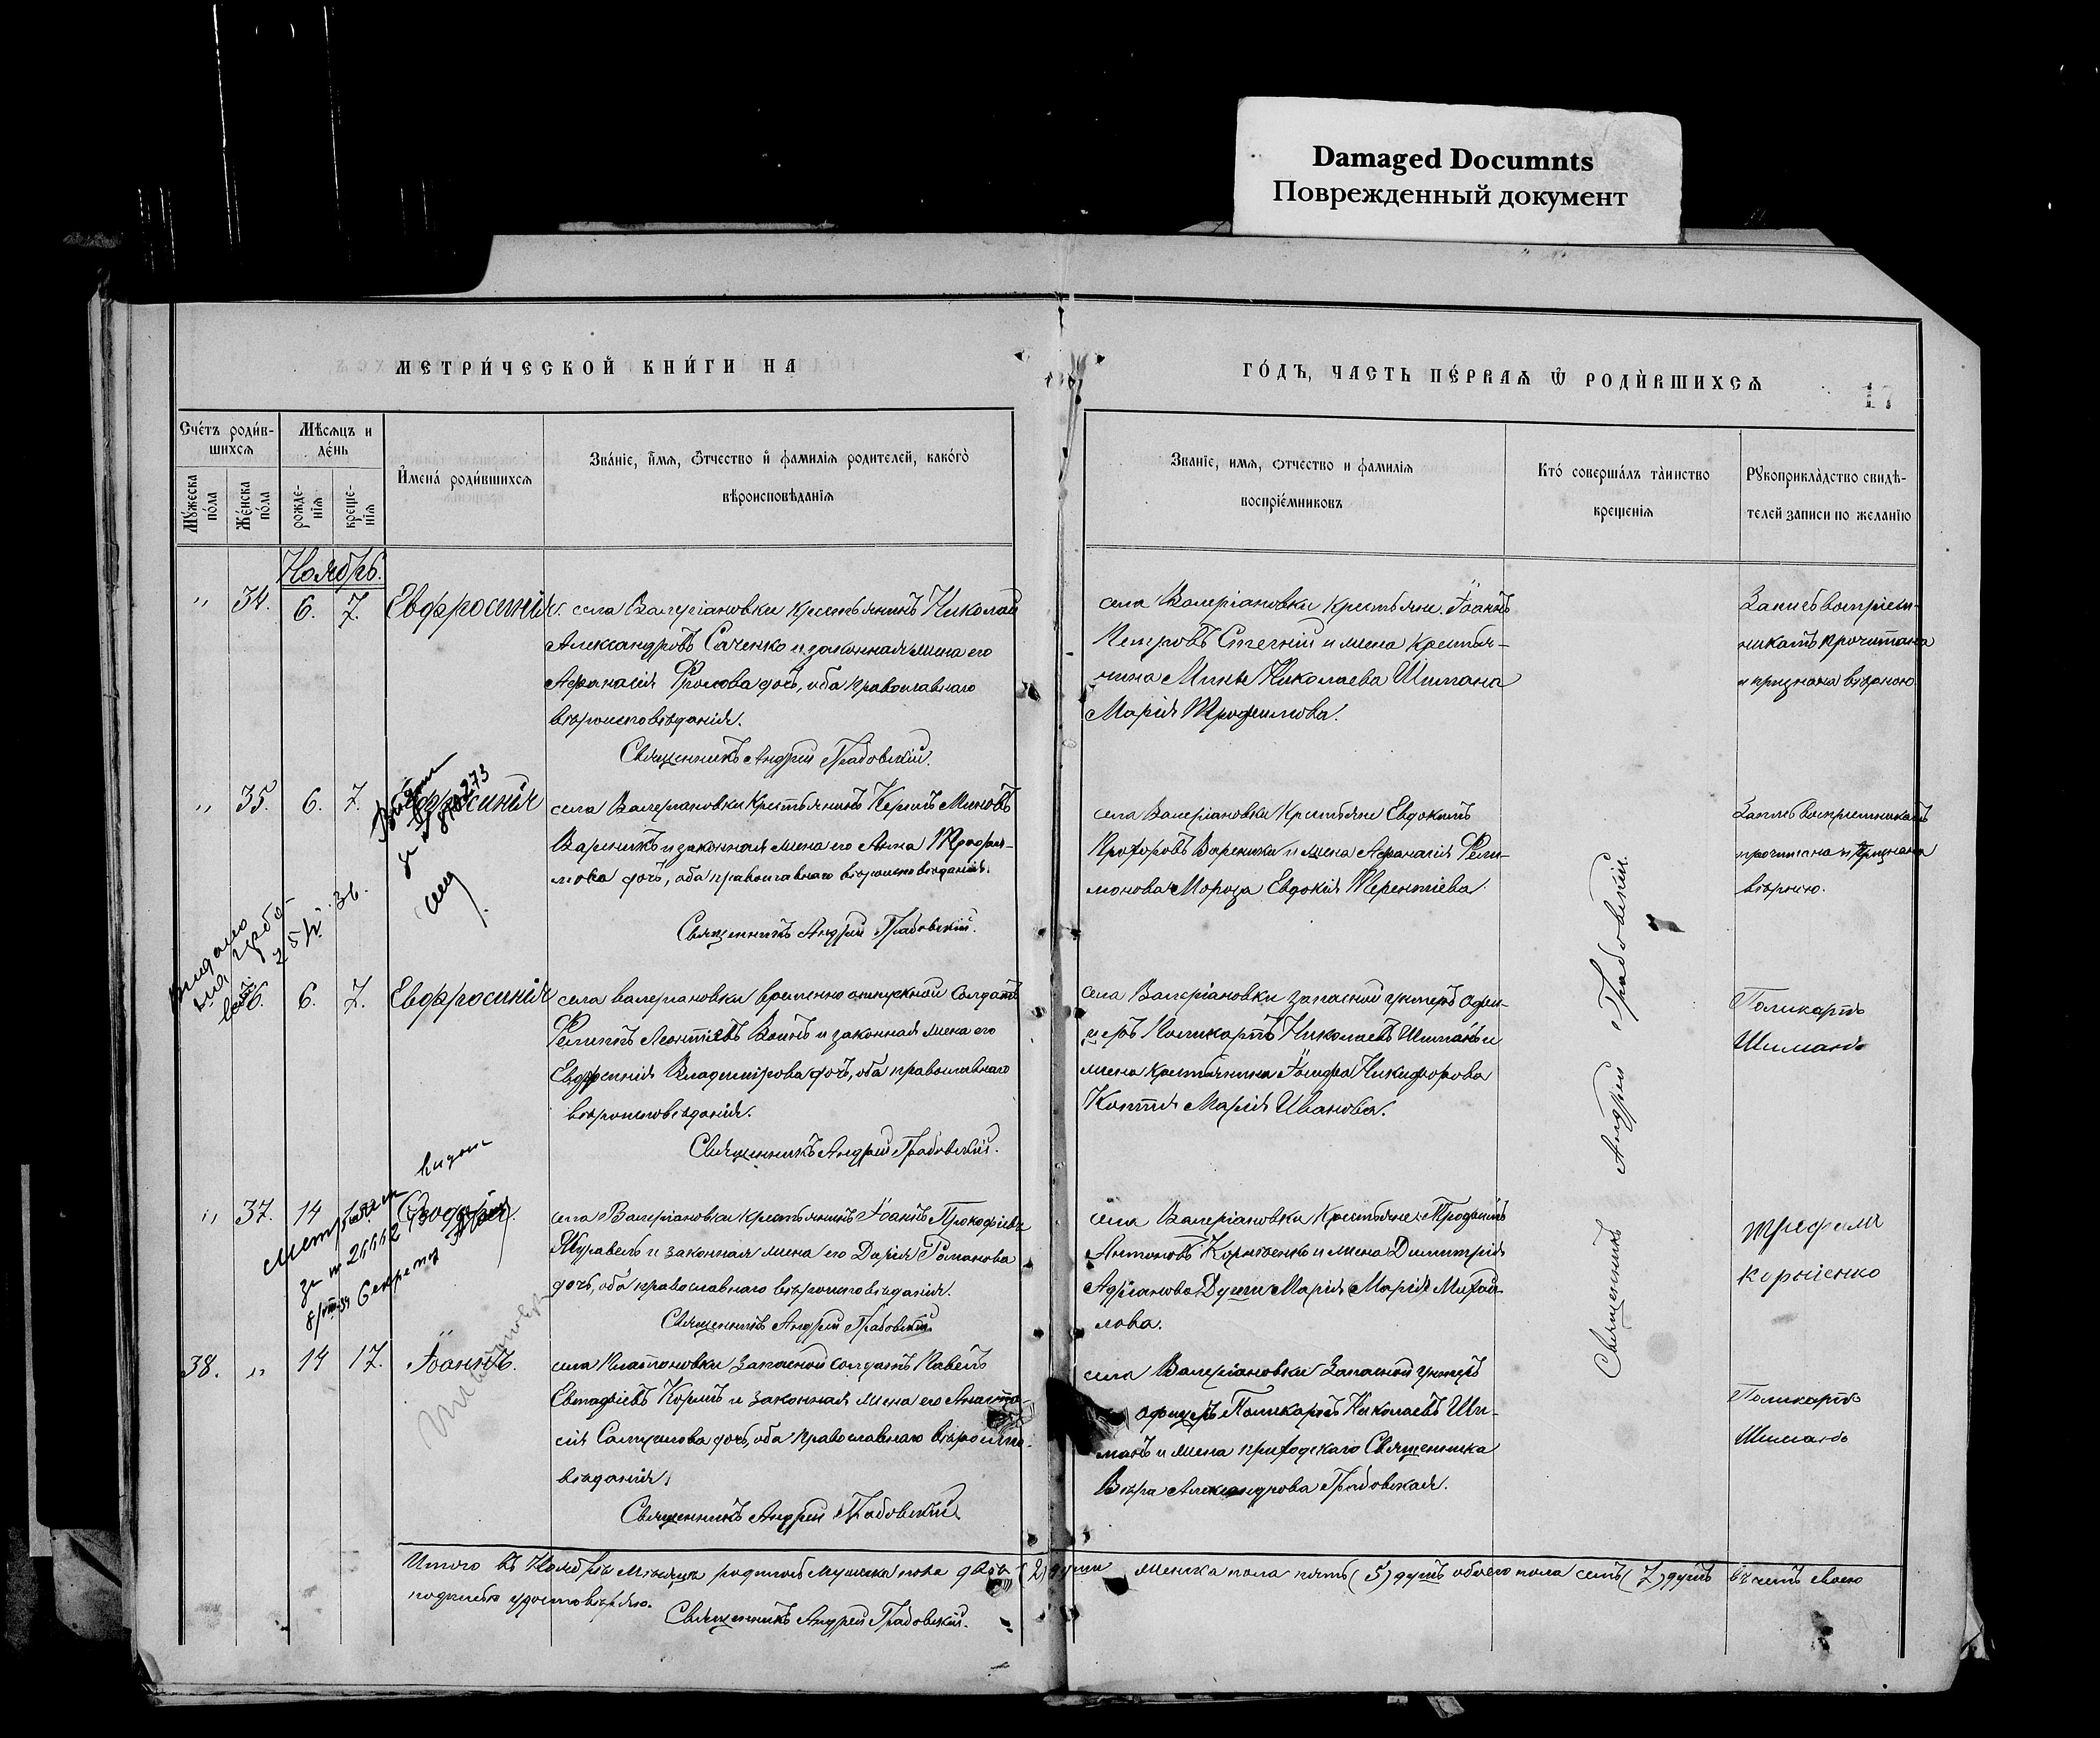 Damaged Documnts
Поврежденный документ
МЕТРИ́ЧЕСКОЙ КНИ́ГИ НА
ГО́ДЪ, ЧАСТЬ ПЕ́РВАѦ Ѿ РОДИ́ВШИХСѦ
17
Сче́тъ роди́в-
шихсѧ
Мѣ́сѧцъ и
де́нь
Му́жеска
по́ла
Же́нска
по́ла
рожде-
нїѧ
креще-
нїѧ
И҆мена̀ роди́вшихсѧ
Зва́нїе, и҆́мѧ, ѻ҆́тчество и҆ фамилїѧ родителей, како́гѡ
вѣроисповѣ́данїѧ
Званїе, имѧ, ѻтчество и фамилїѧ
воспрїе́мниковъ
Кто́ соверша́лъ та́инство
крещенїѧ
Рꙋкоприкла́дство свидѣ-
телей записи по желанїю
Ноябрь.
" 34. 6. 7. Евфросинія
села Валеріановки крестьянинъ Николай
Александровъ Саченко и законная жена его
Афанасія Фролова дочь, оба православнаго
вѣроисповѣданія.
Священникъ Андрей Грабовскій.
села Валеріановки крестьяне: Іоаннъ
Петровъ и жена крестья-
нина Мины Николаева Шимана
Марія Трофимова.
Запись воспріем-
никамъ прочитана
и признана вѣрною
" 35. 6. 7.
села Валеріановки крестьянинъ Миновъ
Вареникъ и законная жена его Анна Трофи-
мова дочь, оба православнаго вѣроисповѣданія.
Священникъ Андрей Грабовскій.
села Валеріановки крестьяне Евдокимъ
Прохоровъ Вареники и жена Афанасія Фили-
монова Мороза Евдокія Терентіева.
Запись воспріемникамъ
прочитана и признана
вѣрною.
6. 7. Евфросинія
села Валеріановки временно отпускной солдатъ
Филипъ Леонтіевъ и законная жена его
Евфросинія Владимірова дочь, оба православнаго
вѣроисповѣданія.
Священникъ Андрей Грабовскій.
села Валеріановки запасной унтеръ офи-
церъ Поликарпъ Николаевъ Шиманъ и
жена крестьянина Никифорова
Марія Иванова.
Поликарпъ
Шиманъ
" 37. 14
села Валеріановки крестьянинъ Іоаннъ Прокофіевъ
Журавель и законная жена его Дарія Романова
дочь, оба православнаго вѣроисповѣданія.
Священникъ Андрей Грабовскій
села Валеріановки крестьяне: Трофимъ
Антоновъ Корніенко и жена Димитрія
Адріанова Марія Марія Михай-
лова.
Трофимъ
Корніенко
38. " 14 17. Іоаннъ.
села Платоновки запасной солдатъ Павелъ
Евстафіевъ и законная жена его Анаста-
сія Самуилова дочь, оба православнаго вѣроиспо-
вѣданія.
Священникъ Андрей Грабовскій
села Валеріановки запасной унтеръ
офицеръ Поликарпъ Николаевъ Ши-
манъ и жена приходскаго Священника
Вѣра Александрова Грабовская.
Поликарпъ
Шиманъ
Священникъ Андрей Грабовскій.
Итого въ Ноябрѣ мѣсяцѣ родилось мужеска пола двѣ (2) души женска пола пять (5) душъ обоего пола семь (7) душъ въ чемъ своею
подписью удостовѣряю.
Священникъ Андрей Грабовскій.